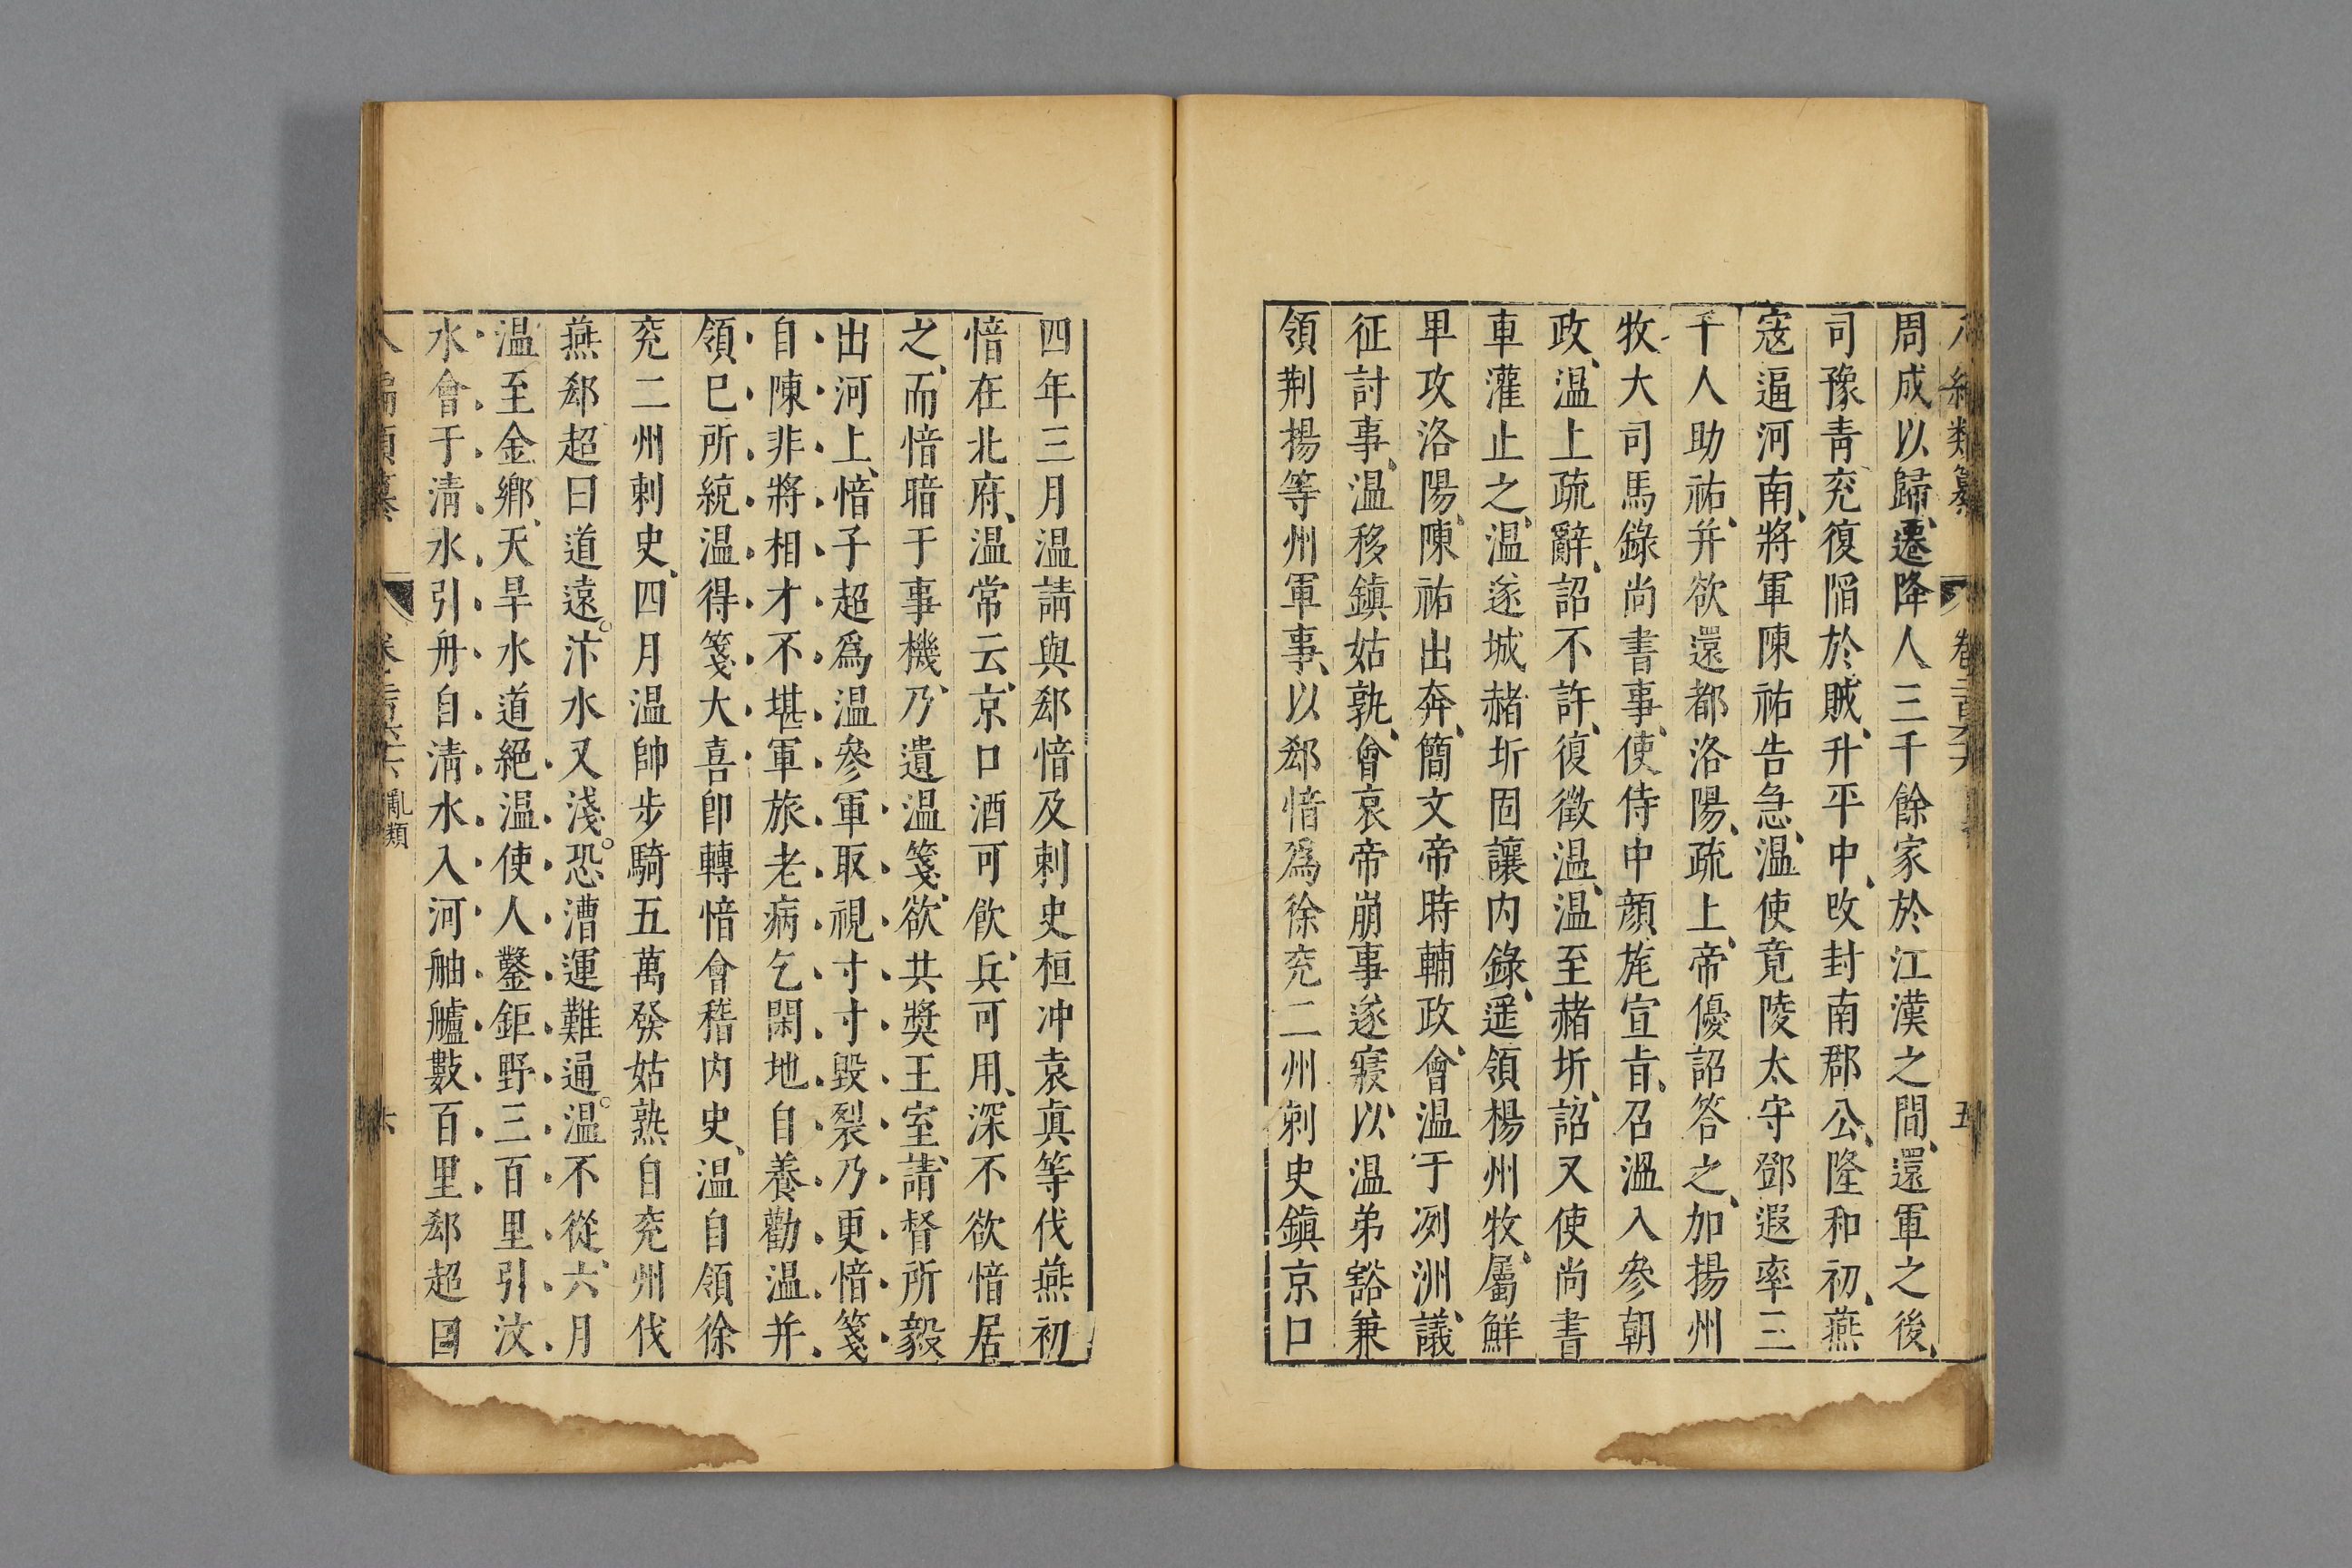 周成以歸遷降人三千餘家於江漢之間還軍之後
司豫青兖復陷於賊升平中改封南郡公隆和初燕
寇逼河南將軍陳祐告急温使竟陵太守鄧遐率三
千人助祐并欲還都洛陽疏上帝優詔答之加揚州
牧大司馬錄尚書事使侍中顔旄宣旨召溫入參朝
政温上疏辭詔不許復徵温温至赭圻詔又使尚書
車灌止之温遂城赭圻固讓内錄遥領楊州牧屬鮮
卑攻洛陽陳祐出奔簡文帝時輔政會温于洌洲議
征討事温移鎮姑孰會哀帝崩事遂寢以温弟豁兼
領荆揚等州軍事以郄愔爲徐兖二州刺史鎮京口
四年三月温請與郄愔及刺史桓冲袁眞等伐燕初
愔在北府温常云京口酒可飲兵可用深不欲愔居
之而愔暗于事機乃遺温箋欲共奬王室請督所部
出河上愔子超爲温參軍取視寸寸毁裂乃更愔箋
自陳非將相才不堪軍旅老病乞閑地自養勸温并
領已所統温得箋大喜卽轉愔會稽内史温自領徐
兖二州刺史四月温帥步騎五萬發姑熟自兖州伐
燕郄超曰道遠汴水又淺恐漕運難通温不從六月
温至金鄉天旱水道絕温使人鑿鉅野三百里引汶
水會于清水引舟自清水入河舳艫數百里郄超曰
亂類